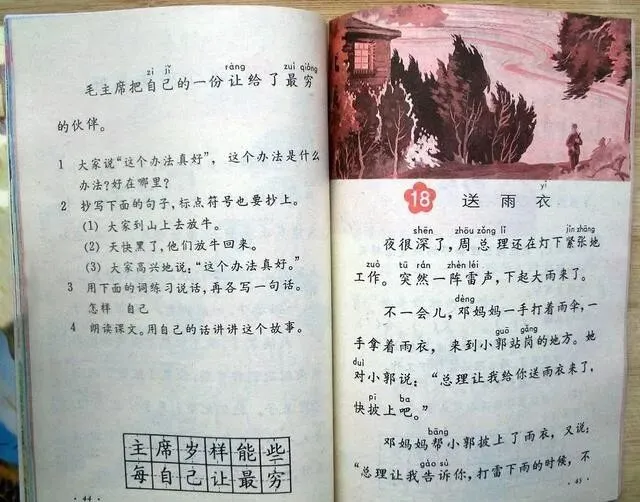 zì jǐ ràng zuì qióng
毛主席把自己的一份让给了最穷
的伙伴。
1 大家说“这个办法真好”，这个办法是什么
办法?好在哪里?
2 抄写下面的句子,标点符号也要抄上。
(1) 大家到山上去放牛。
(2) 天快黑了,他们放牛回来。
(3) 大家高兴地说:“这个办法真好。”
3 用下面的词练习说话,再各写一句话。
怎样 自己
4 朗读课文。用自己的话讲讲这个故事。
主席岁样能些
每自己让最穷
· 44 ·
18 送雨衣
yī
shēn zhōu zǒng lǐ jǐn zhāng
夜很深了,周总理还在灯下紧张地
zuò tū rán zhèn léi
工作。突然一阵雷声,下起大雨来了。
dèng
不一会儿,邓妈妈一手打着雨伞,一
guō gǎng
手拿着雨衣,来到小郭站岗的地方。她
duì
对小郭说:“总理让我给你送雨衣来了,
pī ba
快披上吧。”
bāng
邓妈妈帮小郭披上了雨衣,又说:
gào su
“总理让我告诉你,打雷下雨的时候,不
· 45 ·